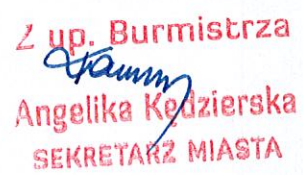 Z up. Burmistrza
Angelika Kędzierska
SEKRETARZ MIASTA